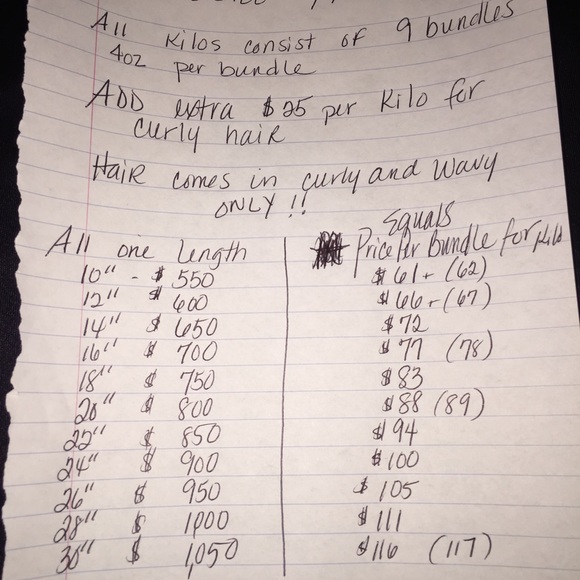 All Kilos consist of 9 bundles
4oz per bundle
ADD extra $25 per Kilo for
curly hair
Hair comes in curly and Wavy
ONLY !!
All one length
Equals
Price Per Bundle for Kilo
10" - $ 550 $61+ (62)
12" $ 600 $66+ (67)
14" $ 650 $72
16" $ 700 $77 (78)
18" $ 750 $83
20" $ 800 $88 (89)
22" $ 850 $94
24" $ 900 $100
26" $ 950 $105
28" $ 1000 $111
30" $ 1,050 $116 (117)